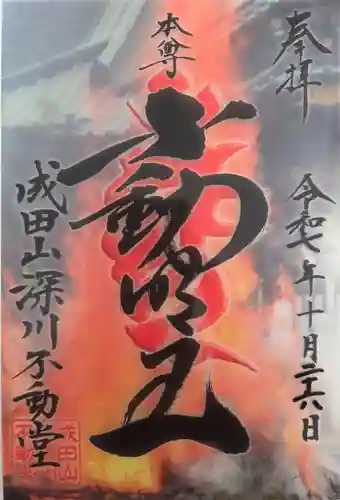 奉拝
令和七年十月二十六日
本尊
不動明王
成田山深川不動堂
成田山